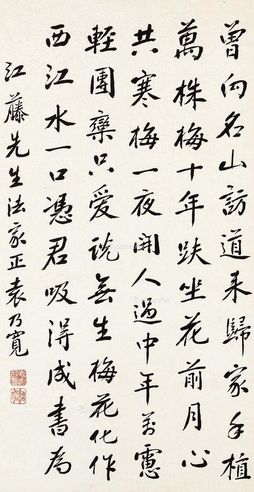 曾向名山訪道来歸家手植
萬株梅十年趺坐花前月心
共寒梅一夜開人過中年萬慮
輕團欒只愛說無生梅花化作
西江水一口憑君吸得成書為
江藤先生法家正袁乃寬